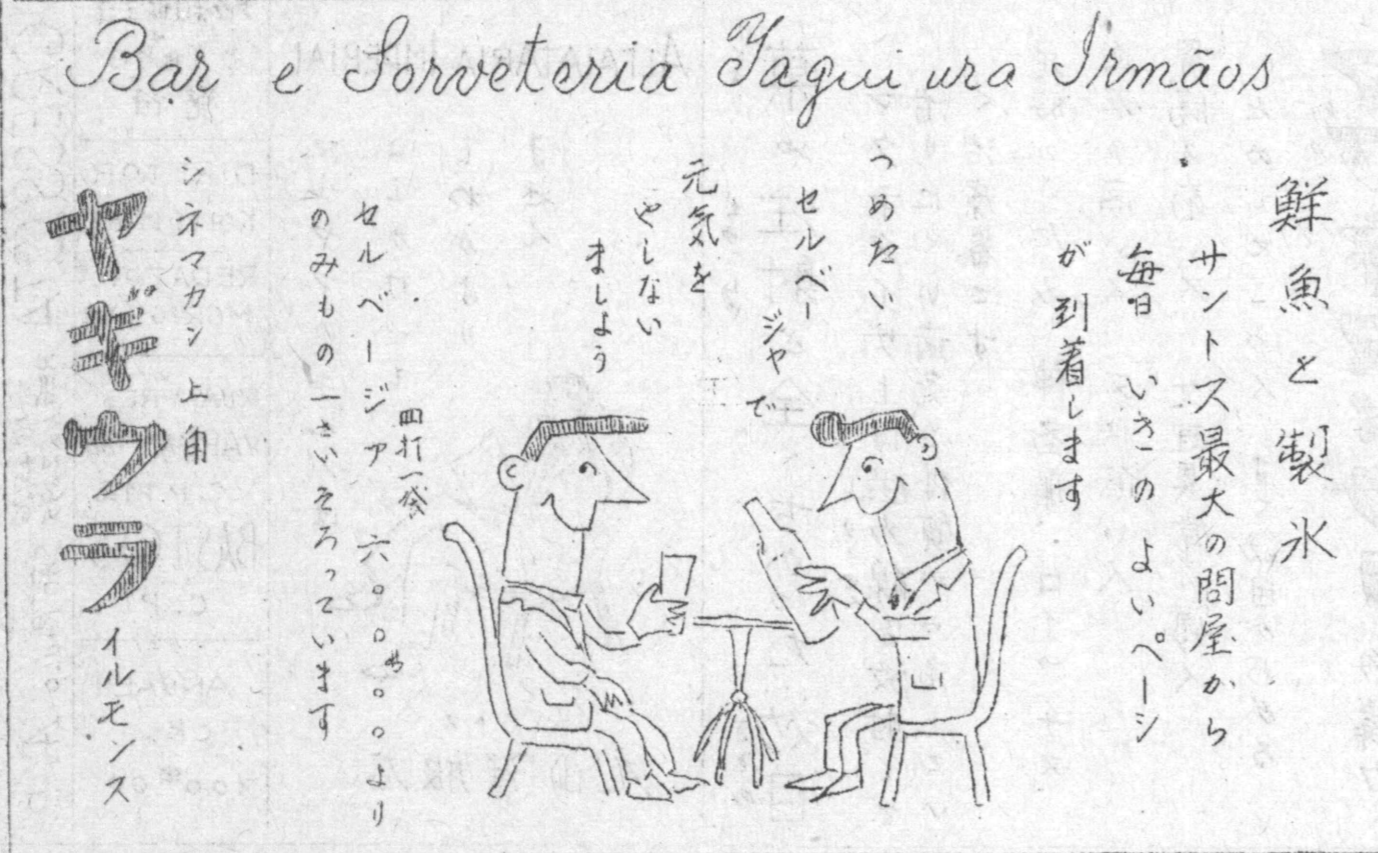 Bar e Sorveteria Yaguiura Irmãos
鮮魚と製氷
サントス最大の問屋から
毎日 いきの よいペーシ
が到着します
つめたい
セルベー
ジャで
元気を
やしない
ましょう
四打一箱
セルベージア 六〇〇$〇〇より
のみもの一さいそろっています
シネマカン上角
ヤギウラ
イルモンス